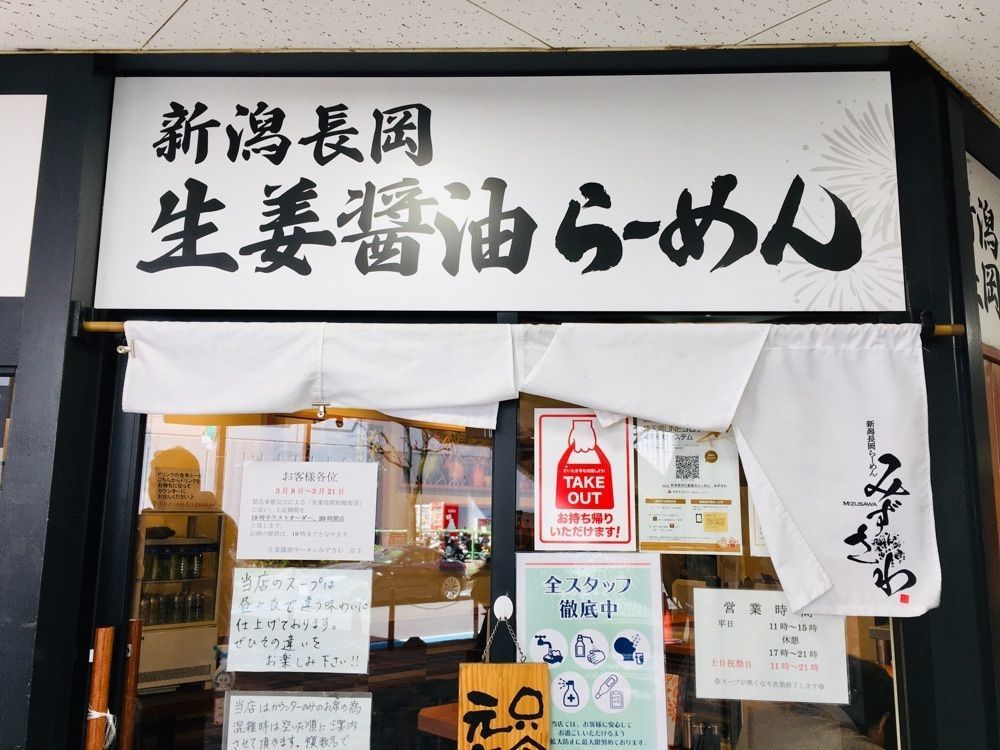 新潟長岡
生姜醤油らーめん
新潟
長岡
新潟長岡らーめん
みずさわ
MIZUSAWA
ドリンクの食券ミー
こちらからドリンクを
お持ちになって
カウンターに
お出しください♪
お客様各位
3月8日〜3月21日
緊急事態宣言による「営業時間短縮要請」
に従い、上記期間を
19時半ラストオーダー、20時閉店
と致します。
お酒の提供は、19時までとなります。
生姜醤油ラーメンみずさわ 店主
当店のスープは
昼と夜で違う味わいに
仕上げております。
ぜひその違いを
お楽しみ下さい!!
当店はカウンターのみのお席の為
混雑時は空いた順にご案内
させて頂きます。複数名で
TAKE
OUT
お持ち帰り
いただけます!
全スタッフ
徹底中
当店では、お客様に安心して
お過ごしいただけるよう
拡大防止に最大限努めております。
営業時間
平日 11時〜15時
休憩
17時〜21時
土日祝祭日 11時〜21時
※スープが無くなり次第終了します※
元